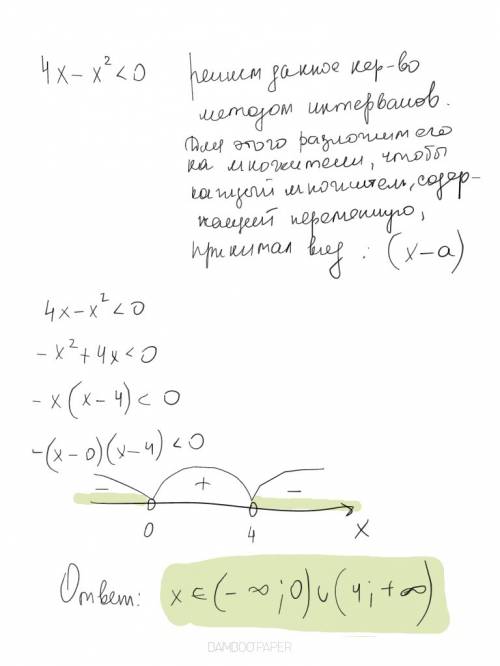 4x - x² < 0 решим данное нер-во
методом интервалов.
Для этого разложим его
на множители, чтобы
каждый множитель, содер-
жащий переменную,
принимал вид : (x-a)
4x - x² < 0
- x² + 4x < 0
- x (x - 4) < 0
-(x - 0)(x - 4) < 0
- + -
0 4 x
Ответ: x ∈ (- ∞ ; 0) ∪ (4 ; + ∞)
BAMBOO PAPER